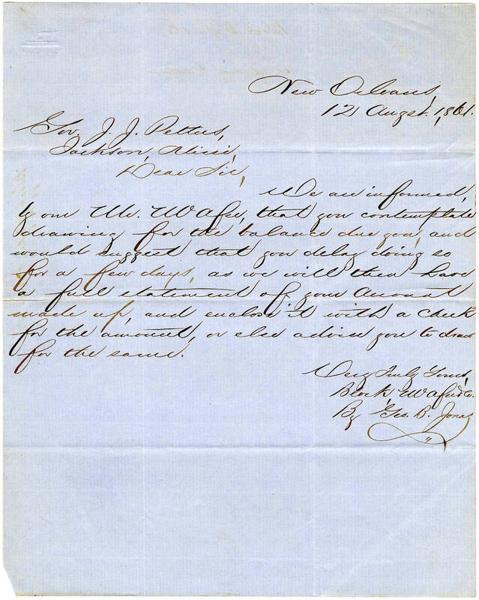 New Orleans,
12 Augst. 1861.
Gov. J. J. Pettus,
Jackson,
Dear Sir,
We are informed,
by our Mr. that you contemplate
drawing for the balance due you, and
would suggest that you delay doing so
for a few days, as we will then have
a full statement of your account
made up, and enclose it with a check
for the amount, or else advise you to draw
for the same.
Very Truly Yours,
Block,
By Geo. B. Jonas